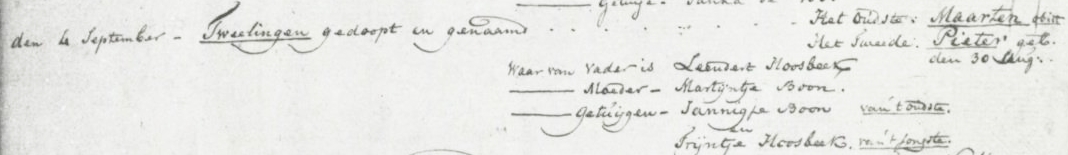 Getuige -
Het Oudste: Maarten obiit
den 4 September - Tweelingen gedoopt en genaamd . . . . . . . .
Het Tweede: Pieter geb.
den 30 Aug:.
Waar van Vader is Leendert Hoosbeek
Moeder - Martyntje Boon.
Getuijgen - Jannigje Boon van 't oudste.
en
Trijntje Hoosbeek. van 't jongste.